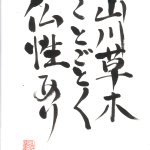 山川草木
ことごとく
仏性あり